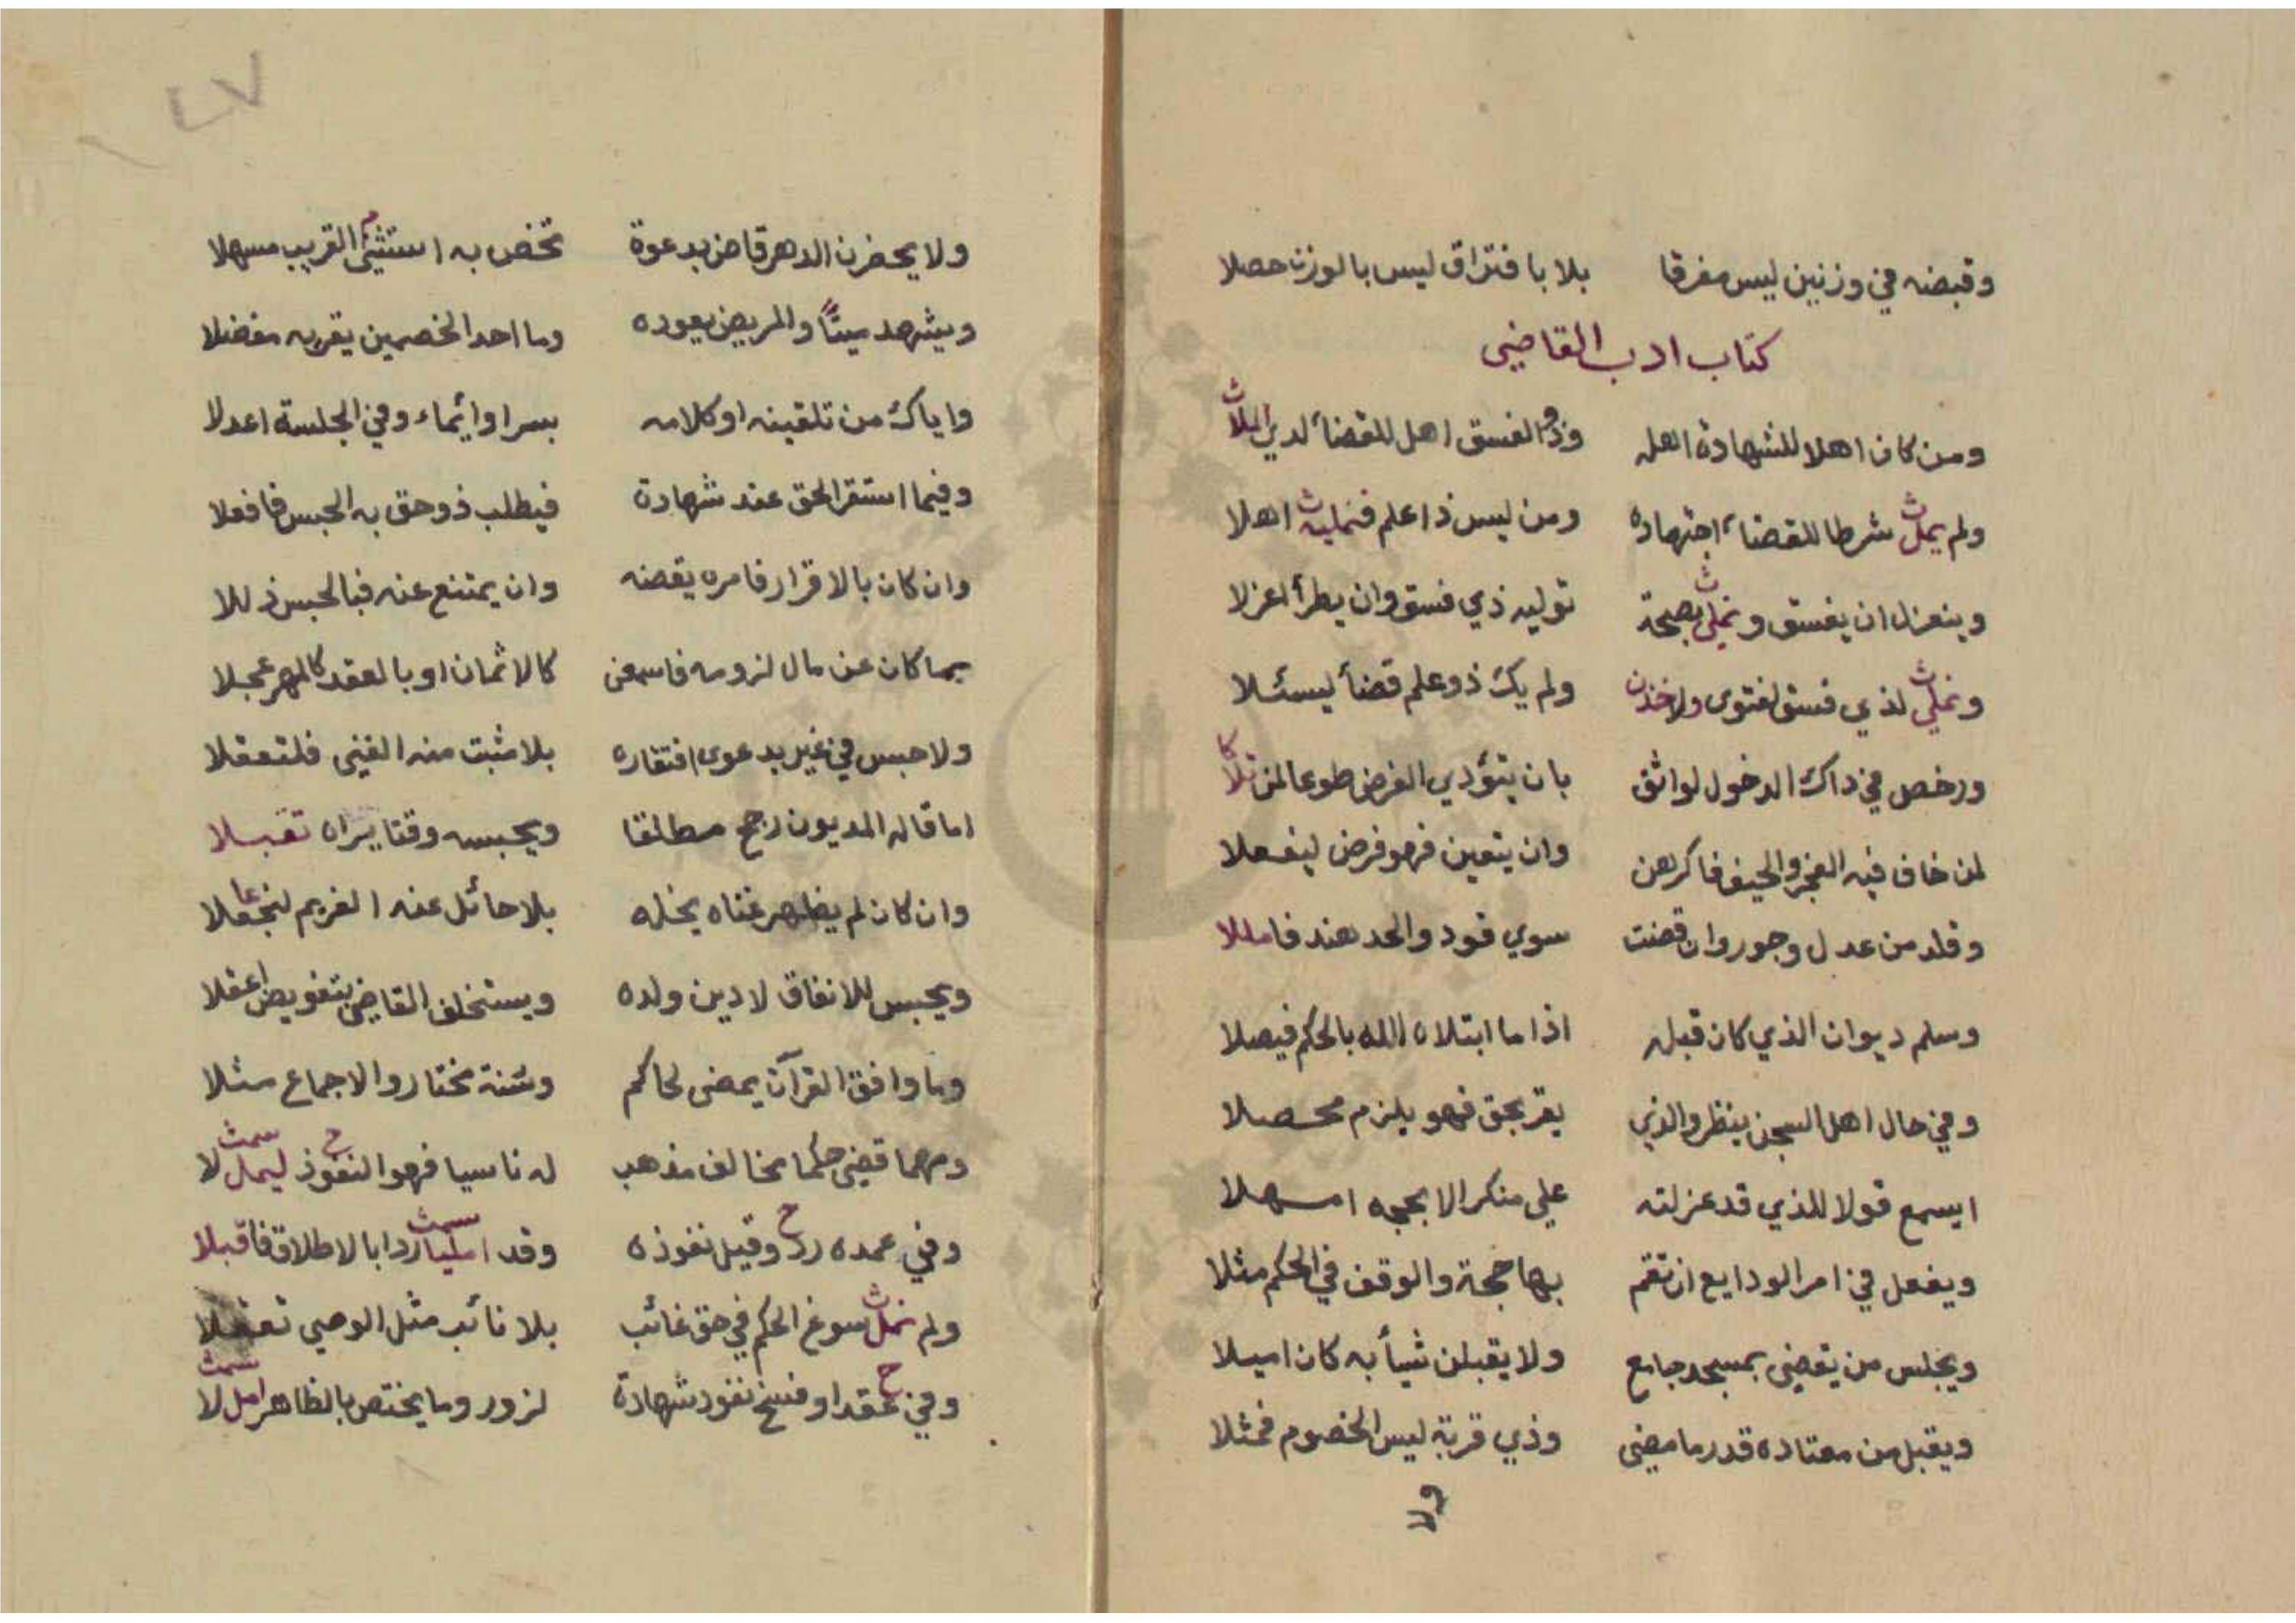 وقبضه في وزنين ليس مفرقا بلا بافتراق ليس بالوزن حصلا
كتاب ادب القاضي
ومن كان اهلا للشهادة اهله وذو الفسق اهل للقضاء لدي الملا ث
ولم يمل ث شرطا للقضاء اجتهاده ومن ليس ذا علم فنمليه ث اهلا
وينعزل ان يفسق ونملي ث بصحة توليه ذي فسق وان يطرأ اعزلا
ونملي ث لذي فسق لفتوى ولاخذن ولم يك ذو علم قضأ ليسئلا
ورخص في داك الدخول لواثق بان يتؤدي الفرض طوعا لمن تلا كا
لمن خاف فيه العجز والحيف فاكرهن وان يتعين فهو فرض ليفعلا
وقلد من عدل وجور وان قضت سوي قود والحد هند فاملا
وسلم ديوان الذي كان قبله اذا ما ابتلاه الله بالحكم فيصلا
وفي حال اهل السجن ينظر والذي يقر بحق فهو يلزم محصلا
ايسمع قولا للذي قد عزلته علي منكر الا بحجه امسهلا
ويفعل في امر الودايع ان تقم بها حجة والوقف في الحكم مثلا
ويجلس من يقضي بمسجد جامع ولا يقبلن شيأ به كان اميلا
ويقبل من معتاده قدر ما مضى وذي قربة ليس الخصوم فمثلا
ولا
٤٧
ولا يحضرن الدهر قاض بدعوة تخص به استثنى م القريب مسهلا
ويشهد ميتا والمريض يعوده وما احد الخصمين يقربه مفضلا
واياك من تلقينه او كلامه بسر او ائماء وفي الجلسة اعدلا
وفيما استقر الحق عند شهادة فيطلب ذو حق به الحبس فافعلا
وان كان بالاقرار فامره يقضه وان يمتنع عنه فبالحبس ذللا
بما كان عن مال لزومه فاسمعن كالاثمان او بالعقد كالمهر عجلا
ولا حبس في غير بدعوى افتقاره بلا مثبت منه الغنى فلتعقلا
اما قاله المديون رجح مطلقا ويحبسه وقتا يراه تقبلا
وان كان لم يظهر غناه يخله بلا حائل عنه الغريم لنجعلا عا
ويحبس للانفاق لا دين ولده ويستخلف القاضي بتفويض اعقلا
وما وافق القرآن يمضى لحاكم وسنة مختار والاجماع مثلا
ومهما قضى حكما مخالف مذهب له ناسيا فهو النفوذ ح ليمل سمث لا
وفي عمده رد ح وقيل نفوذه وقد امليا سمث ردا بالاطلاق فاقبلا
ولم نمل ث سوغ الحكم في حق غائب بلا نائب مثل الوصي تعقلا
وفي عقد او فسخ ح نفود شهادة لزور وما يختص بالظاهر امل سمث لا